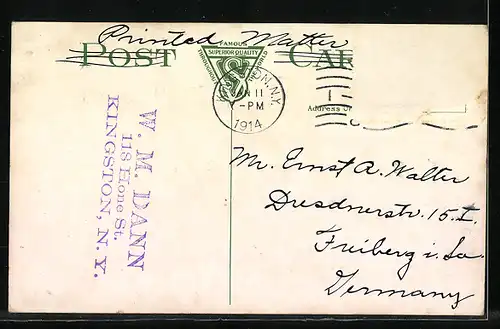 Printed Matter
POST CARD
FAMOUS
SUPERIOR QUALITY
THROUGHOUT
WORLD
N.Y.
11
-PM
1914
Address
W. M. DANN
118 Hone St.
KINGSTON, N. Y.
Mr. Ernst A. Walter
Dresdnerstr. 15. I.
Freiberg i. Sa.
Germany